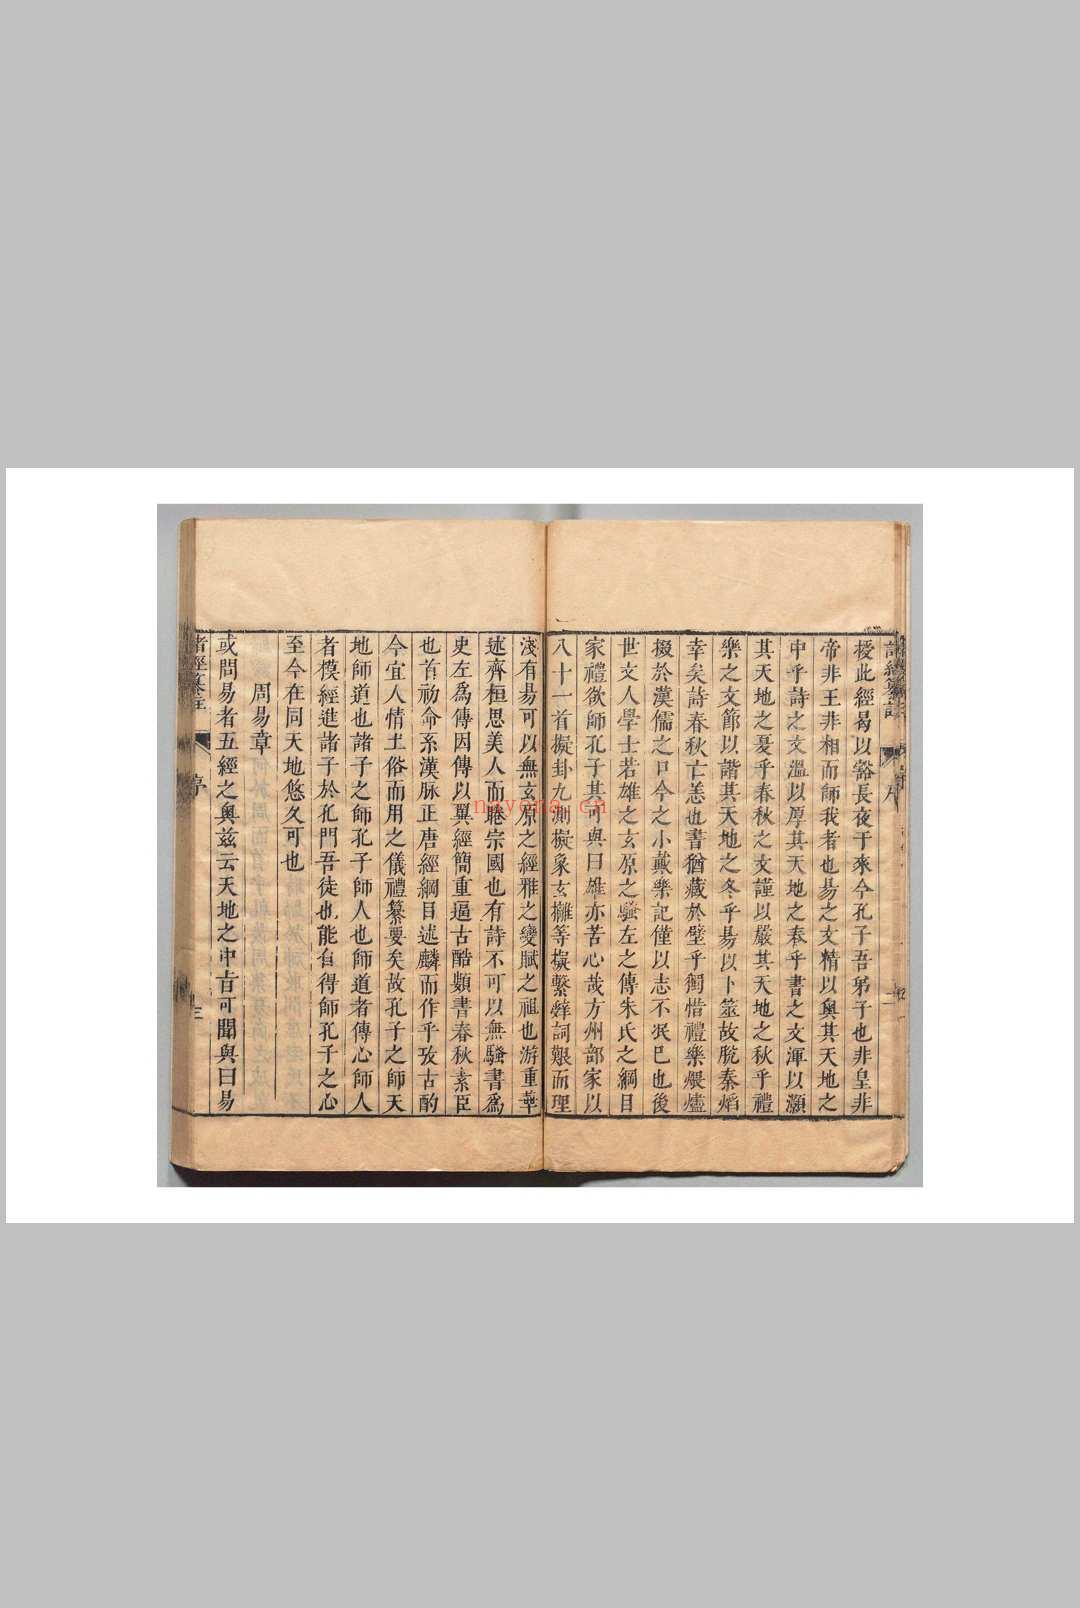 授此經曷以谿長夜于來今孔子吾弟子也非皇非
帝非王非相而師我者也易之文精以奧其天地之
中乎詩之文溫以厚其天地之春乎書之文渾以灝
其天地之夏乎春秋之文謹以嚴其天地之秋乎禮
樂之文節以諧其天地之冬乎易以卜筮故脫秦熖
幸矣詩春秋亡恙也書猶藏於壁乎獨惜禮樂煨燼
掇於漢儒之口今之小戴樂記僅以志不泯巳也後
世文人學士若雄之玄原之騷左之傳朱氏之綱目
家禮欲師孔子其可與曰雄亦苦心哉方州部家以
八十一首擬卦九測擬彖玄攡等擬繫辤詞艱而理
淺有易可以無玄原之經雅之變賦之祖也游重華
述齊桓思美人而睠宗國也有詩不可以無騷書為
史左為傳因傳以翼經簡重逼古酷類書春秋素臣
也首初命系漢脉正唐經綱目述麟而作乎攷古酌
今宜人情土俗而用之儀禮纂要矣故孔子之師天
地師道也諸子之師孔子師人也師道者傳心師人
者模經進諸子於孔門吾徒也能自得師孔子之心
至今在同天地悠久可也
周易章
或問易者五經之奧兹云天地之中旨可聞與曰易
者經纂註
序
三
nayona.cn